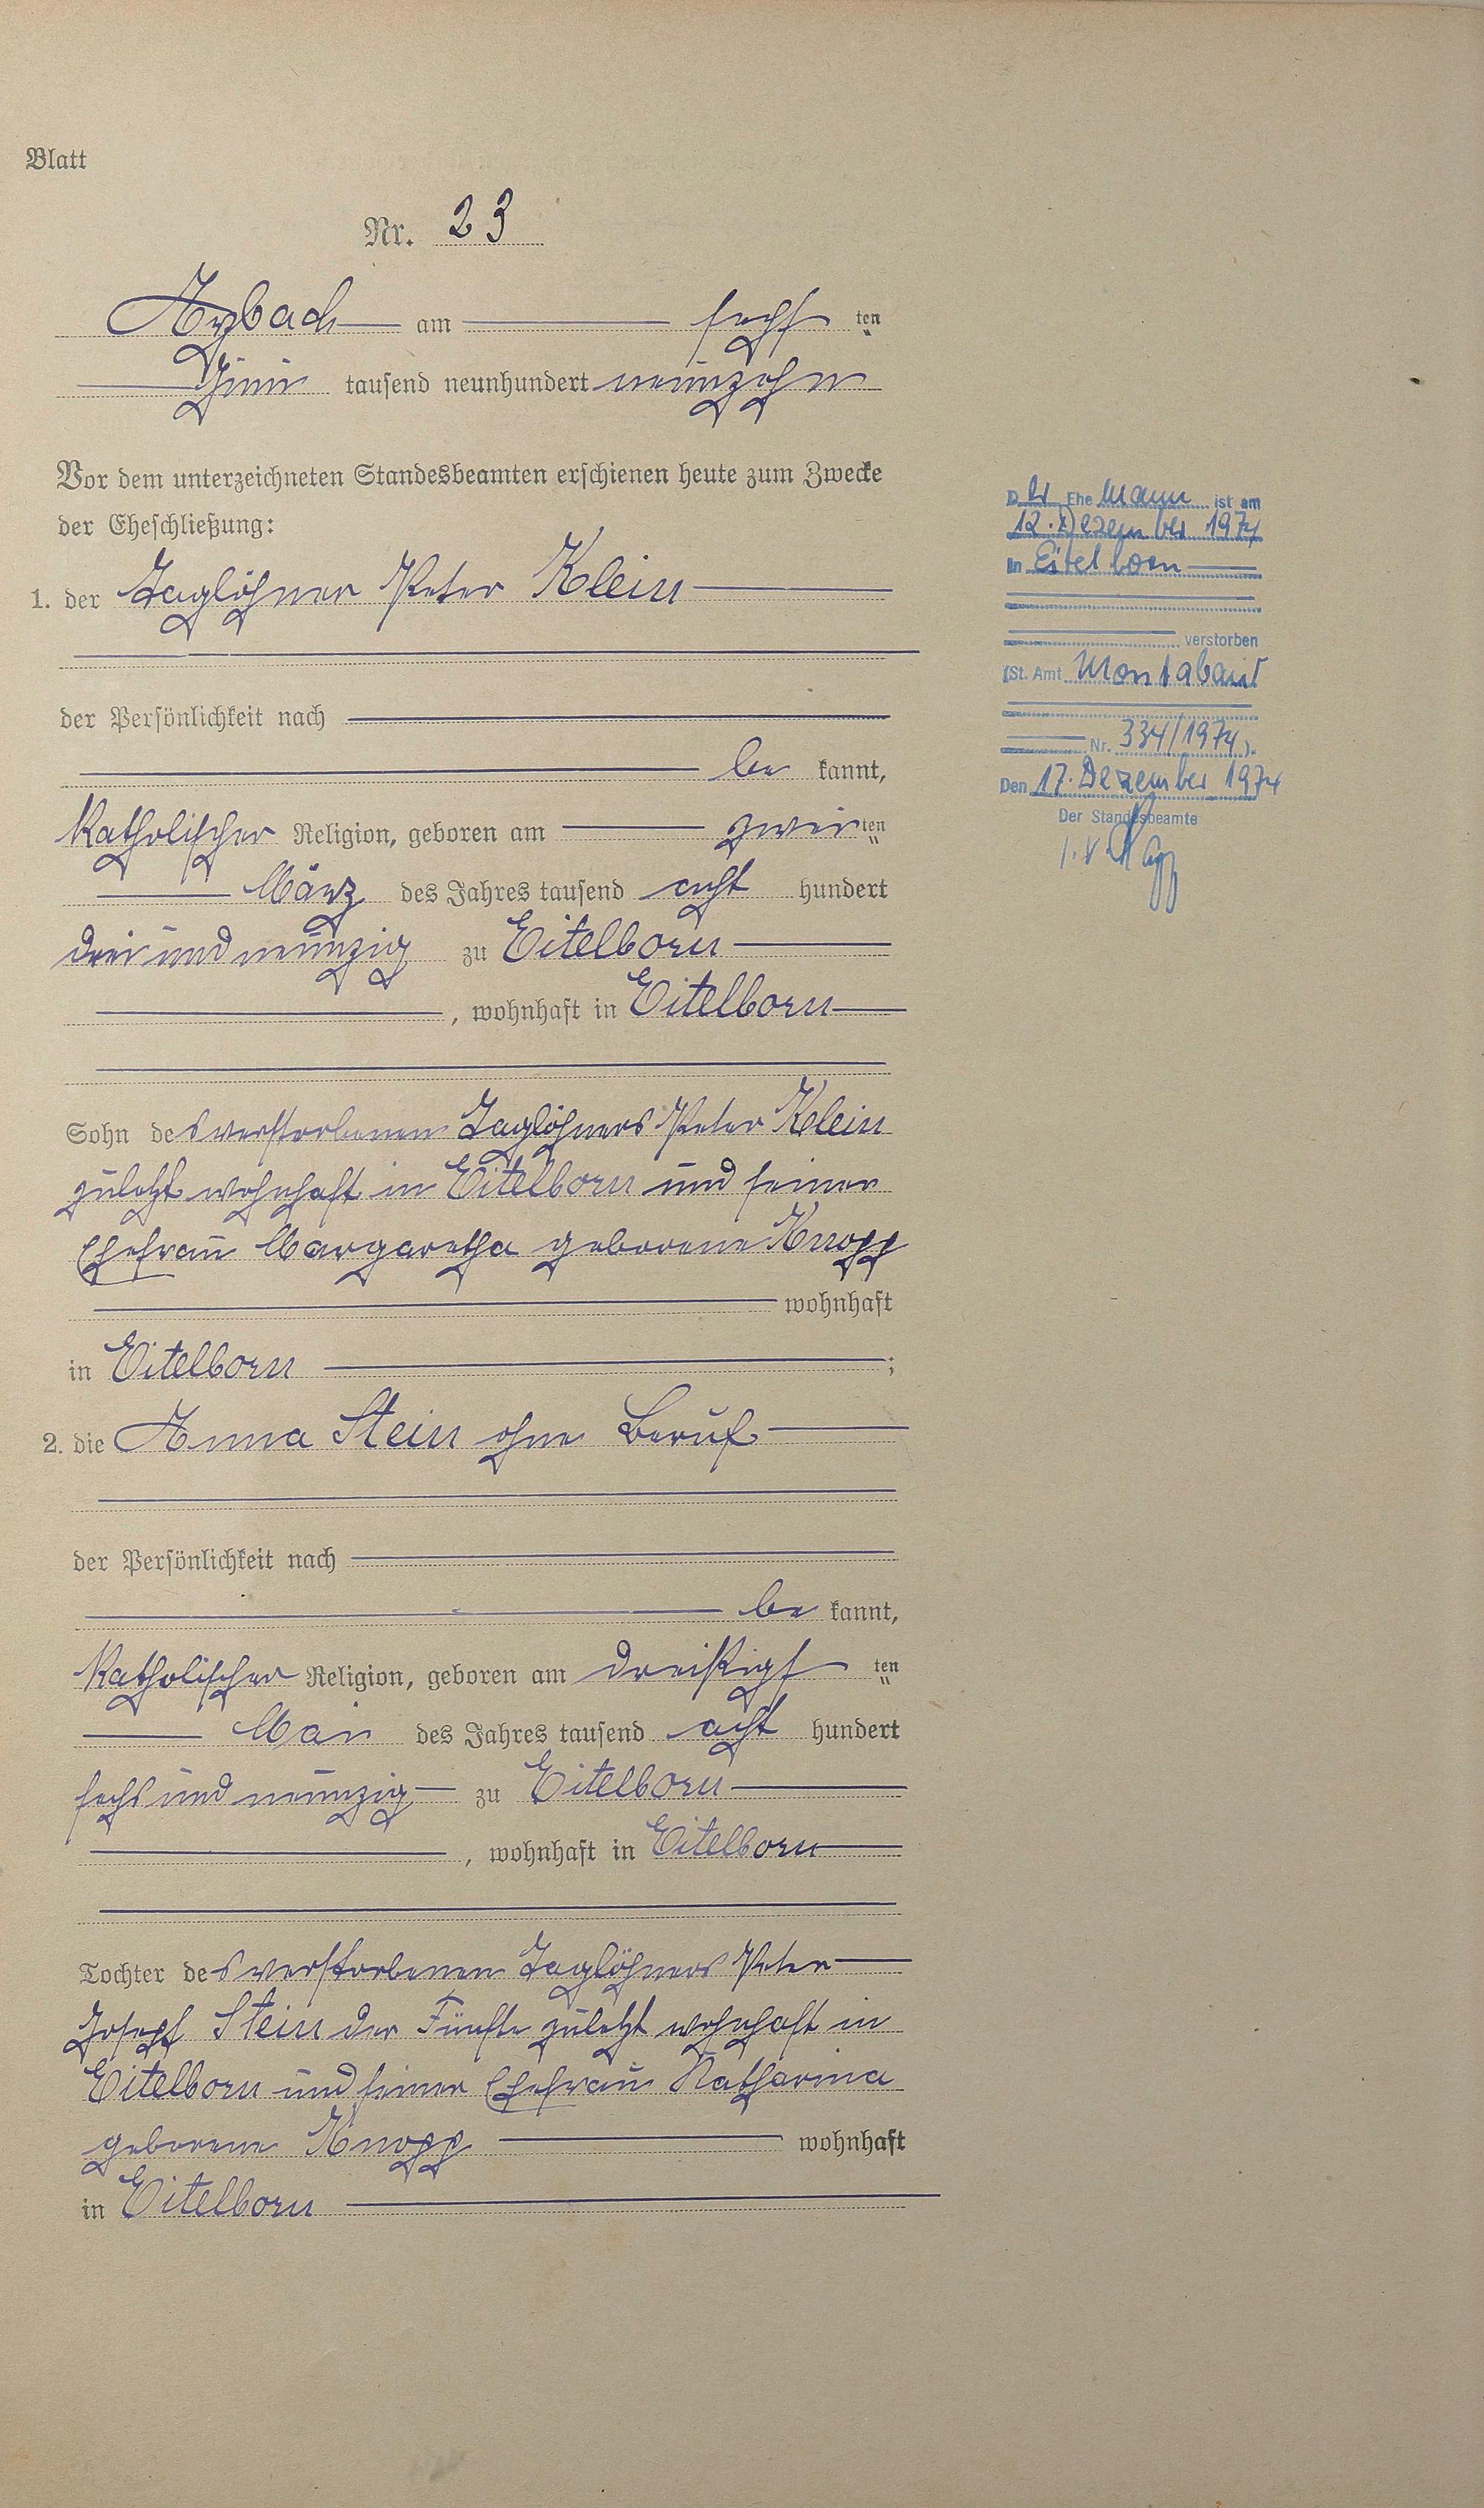 Blatt
Nr. 23
Arzbach am sechs ten
Juni tausend neunhundert neunzehn
Vor dem unterzeichneten Standesbeamten erschienen heute zum Zwecke
der Eheschließung:
1. der Taglöhner Peter Klein
der Persönlichkeit nach
be kannt,
katholischer Religion, geboren am zwei ten
März des Jahres tausend acht hundert
drei und neunzig zu Eitelborn
, wohnhaft in Eitelborn
Sohn des verstorbenen Taglöhners Peter Klein
zuletzt wohnhaft in Eitelborn und seiner
Ehefrau Margaretha geborene Knopp
wohnhaft
in Eitelborn ;
2. die Anna Stein ohne Beruf
der Persönlichkeit nach
be kannt,
katholischer Religion, geboren am dreißigs ten
Mai des Jahres tausend acht hundert
sechs und neunzig zu Eitelborn
, wohnhaft in Eitelborn
Tochter des verstorbenen Taglöhners Peter
Josef Stein der Fünfte zuletzt wohnhaft in
Eitelborn und seiner Ehefrau Katharina
geborene Knopp wohnhaft
in Eitelborn
Der Ehe Mann ist am
12. Dezember 1974
in Eitelborn
verstorben
(St. Amt Montabaur
Nr. 334/1974).
Den 17. Dezember 1974
Der Standesbeamte
I.V.